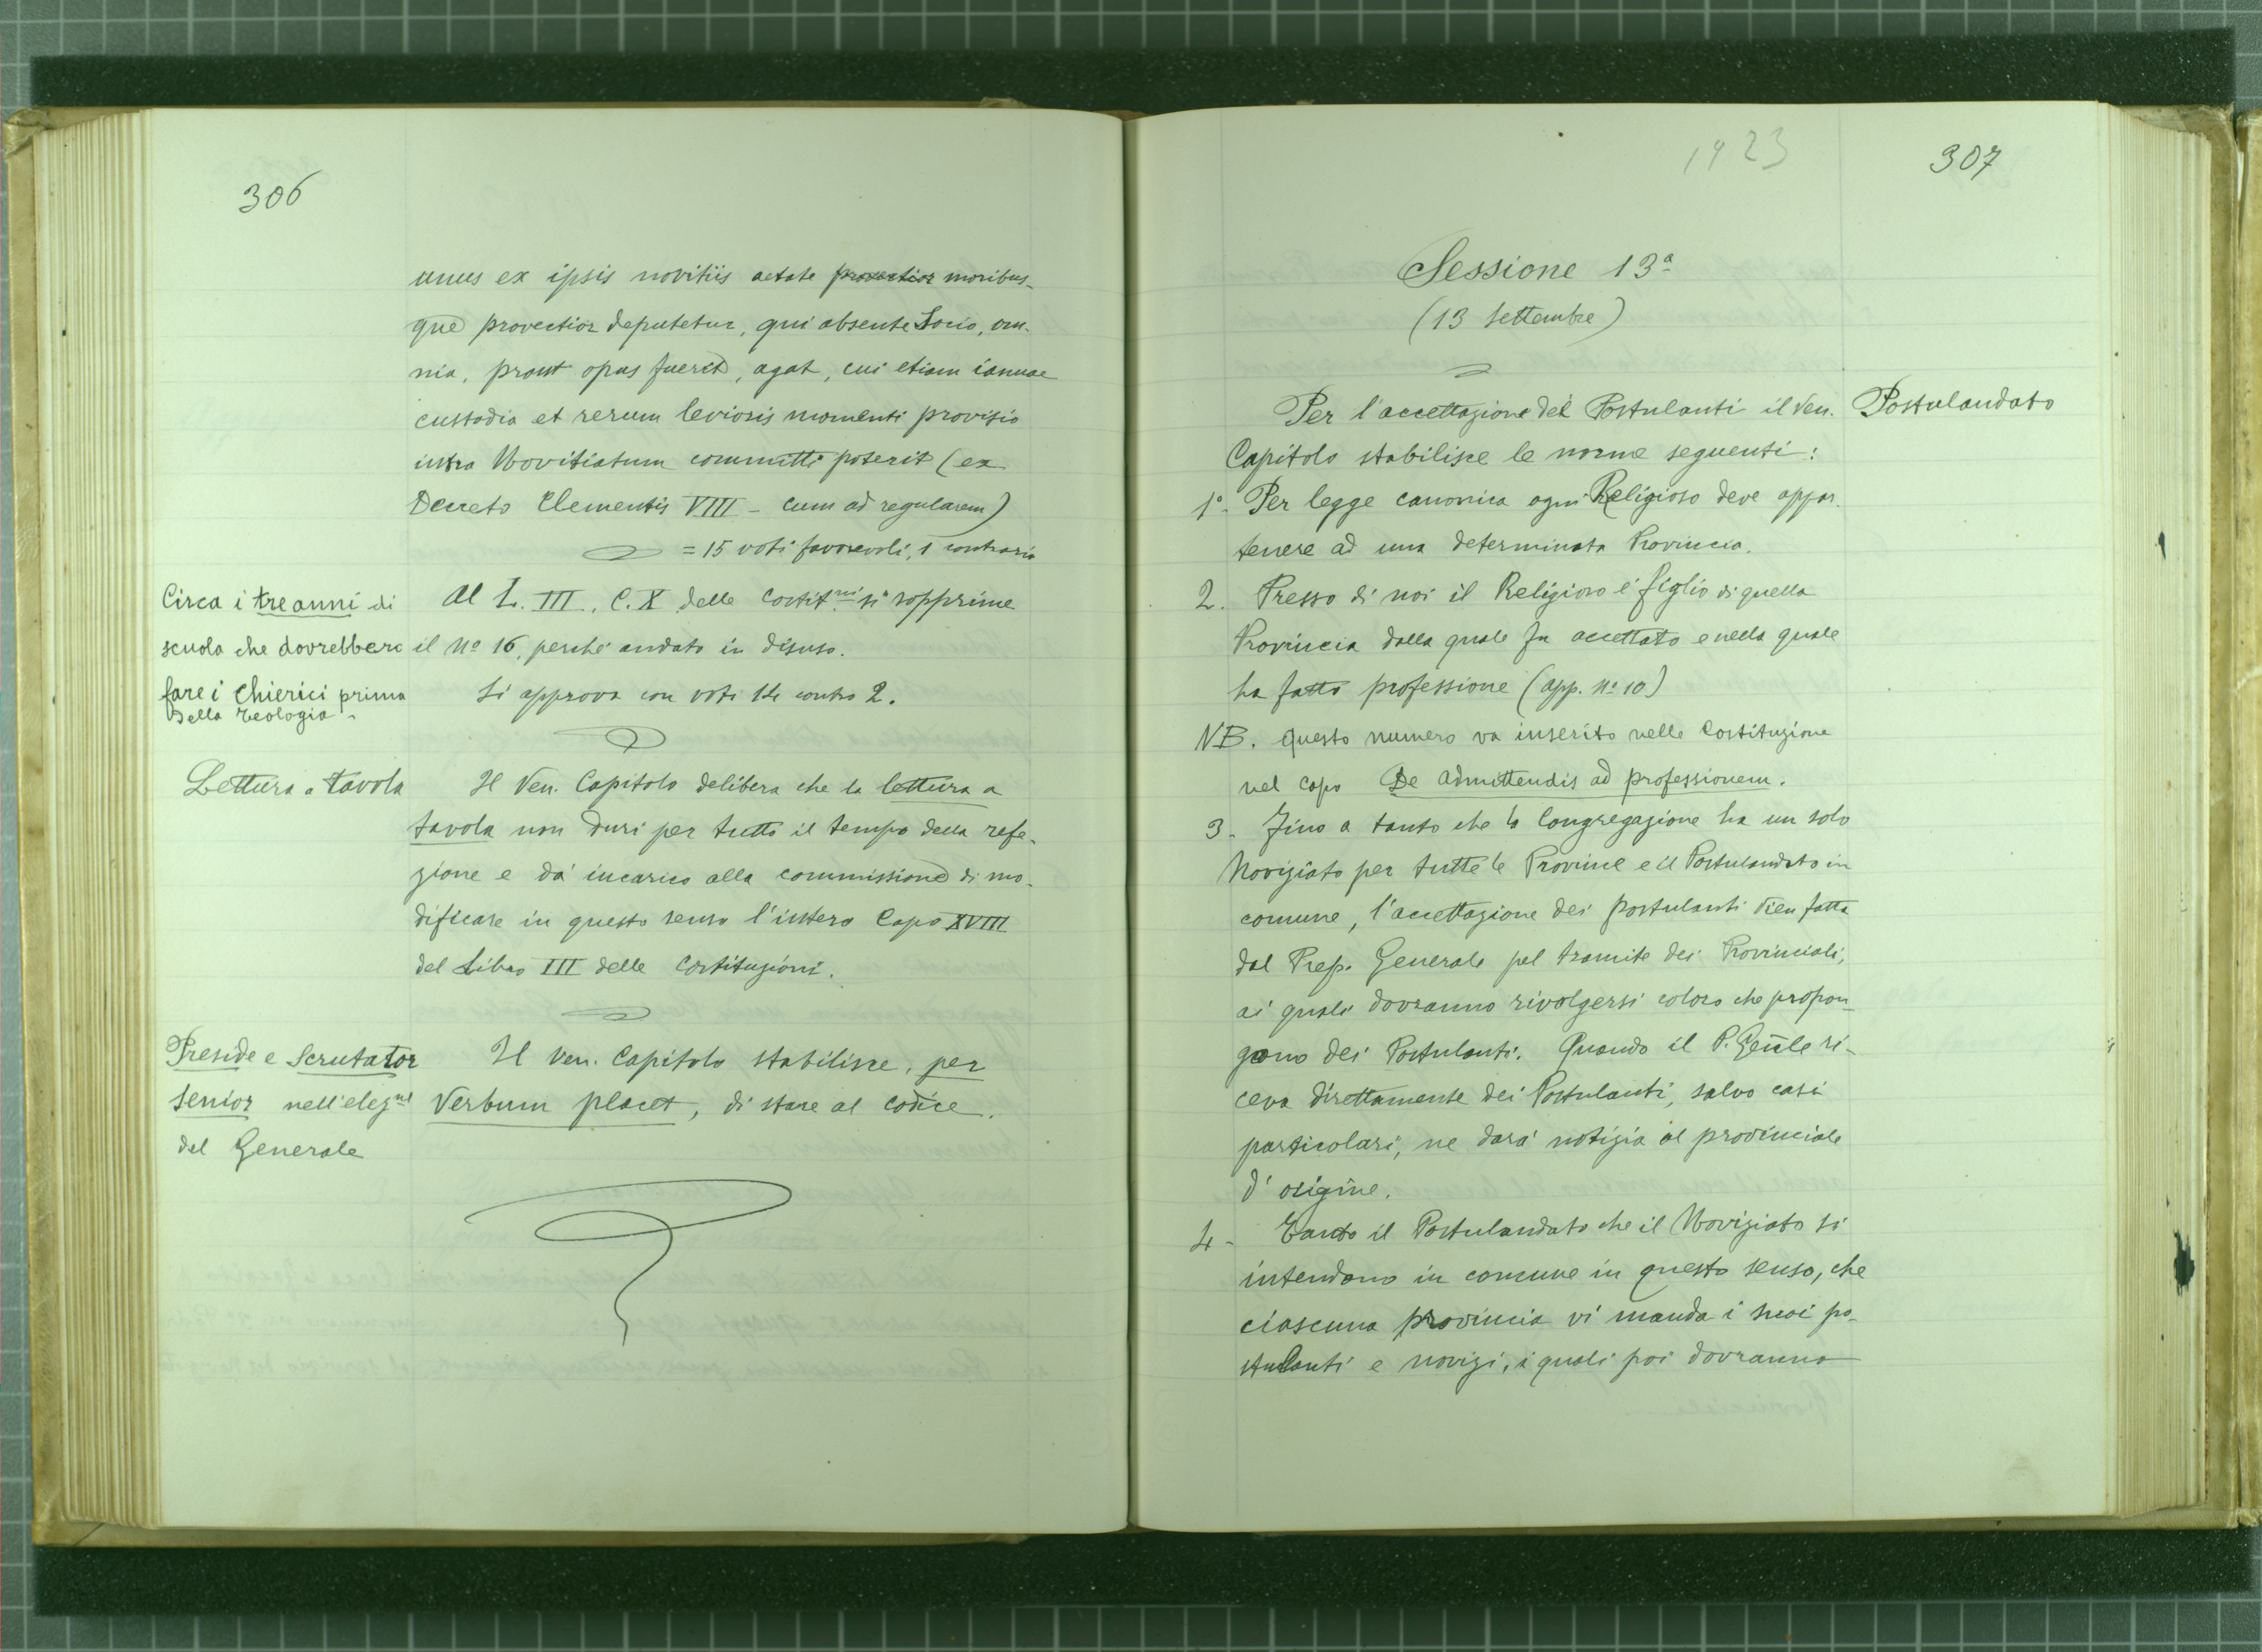 306
unus ex ipsis novitiis aetate provectior moribus-
que provectior deputetur, qui absente Socio, om-
nia, prout opus fuerit, agat, cui etiam ianuae
custodia et rerum levioris momenti provisio
intra Novitiatum committi poterit (ex
Decreto Clementis VIII - Cum ad regularem)
= 15 voti favorevoli, 1 contrario
Circa i tre anni di
scuola che dovrebbero
fare i Chierici prima
della teologia -
Al L. III, C. X delle Costit.ni si sopprime
il No 16, perchè andato in disuso.
Si approva con voti 14 contro 2.
Lettura a tavola
Il Ven. Capitolo delibera che la lettura a
tavola non duri per tutto il tempo della refe-
zione e dà incarico alla commissione di mo-
dificare in questo senso l'intero Capo XVIII
del Libro III delle Costituzioni.
Preside e Scrutator
senior nell'elezne
del Generale
Il Ven. Capitolo stabilisce, per
Verbum placet, di stare al codice.
1923
307
Sessione 13a
(13 settembre)
Postulandato
Per l'accettazione dei Postulanti il Ven.
Capitolo stabilisce le norme seguenti:
1o- Per legge canonica ogni Religioso deve appar-
tenere ad una determinata Provincia.
2. Presso di noi il Religioso è figlio di quella
Provincia dalla quale fu accettato e nella quale
ha fatto professione (app. No 10)
NB. questo numero va inserito nelle Costituzione
nel capo De admittendis ad professionem.
3- Fino a tanto che la Congregazione ha un solo
Noviziato per tutte le Provincie e il Postulandato in
comune, l'accettazione dei postulanti vien fatta
dal Prep. Generale pel tramite dei Provinciali,
ai quali dovranno rivolgersi coloro che propon-
gono dei Postulanti. Quando il P. Gen̅le ri-
ceva direttamente dei Postulanti, salvo casi
particolari, ne darà notizia al provinciale
d'origine.
4- Tanto il Postulandato che il Noviziato si
intendono in comune in questo senso, che
ciascuna provincia vi manda i suoi po-
stulanti e novizi, i quali poi dovranno